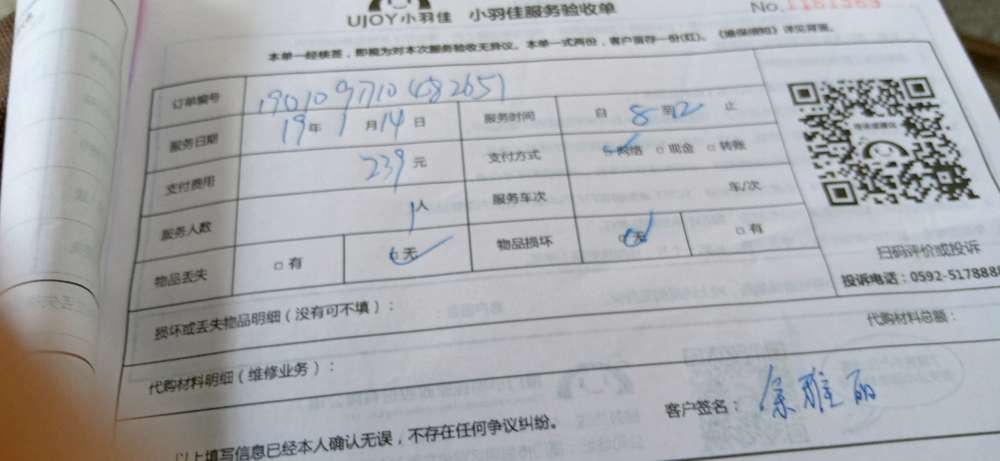 UJOY小羽佳 小羽佳服务验收单
No.1181989
本单一经核签,即视为对本次服务验收无异议。本单一式两份,客户留存一份(红)。《维保细则》详见背面。
订单编号 190109710482651
服务日期 19年1月14日 服务时间 自8至12止
支付费用 239元 支付方式 网络 □现金 □转账
服务人数 1人 服务车次 车/次
物品丢失 □有 无 物品损坏 无 □有
扫码评价或投诉
投诉电话:0592-5178888
损坏或丢失物品明细(没有可不填):
代购材料明细(维修业务): 代购材料总额:
以上填写信息已经本人确认无误,不存在任何争议纠纷。 客户签名:雅丽